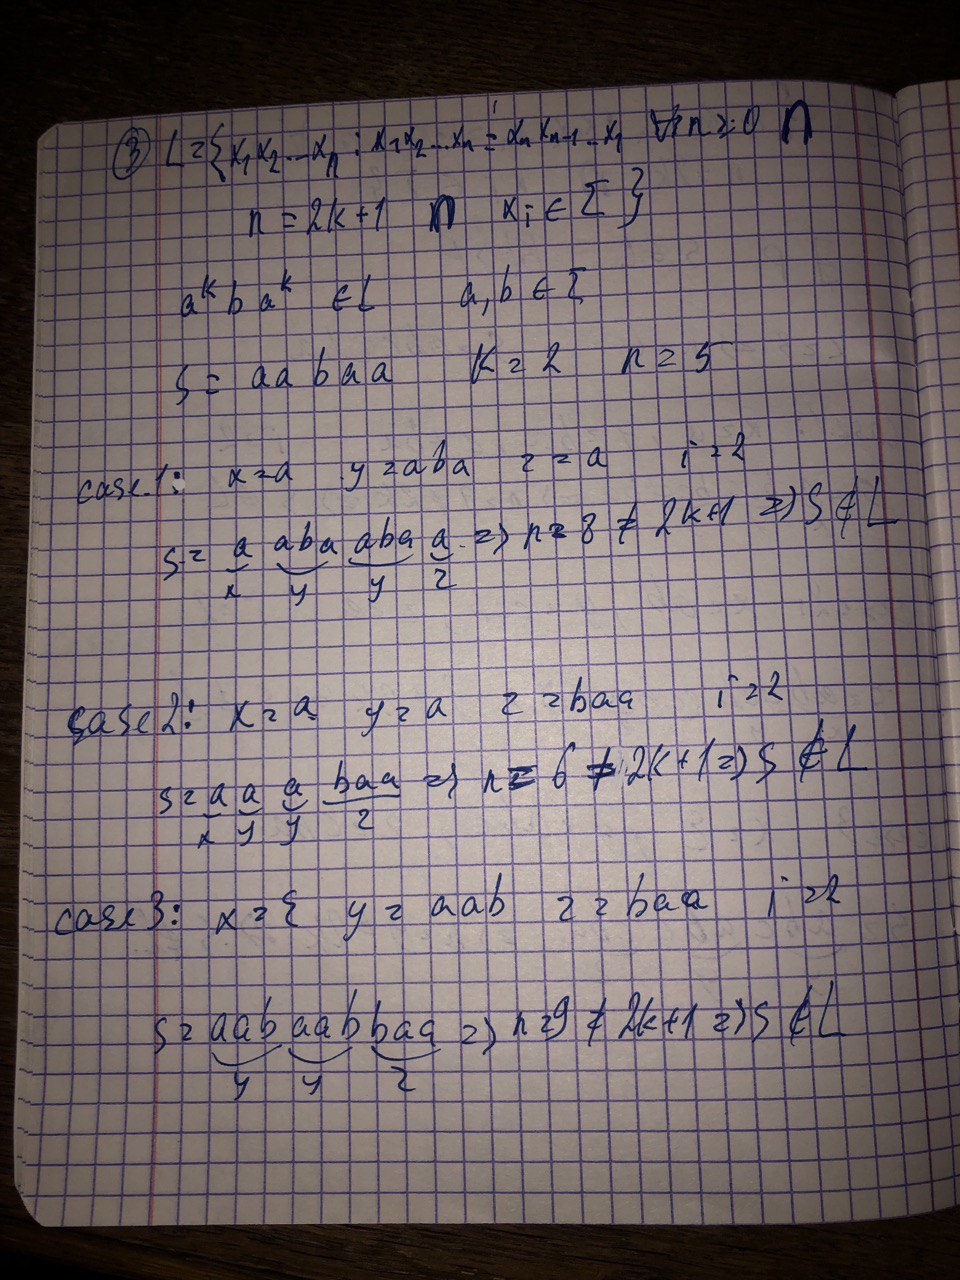 ③ L = {x₁x₂...xₙ : x₁x₂...xₙ = xₙxₙ₋₁...x₁ ∀n ≥ 0 ∩
n = 2k+1 ∩ xᵢ ∈ Σ}
aᵏbaᵏ ∈ L a, b ∈ Σ
S = aabaa k = 2 n = 5
case 1: x = a y = aba z = a i = 2
S = a aba aba a => n = 8 ≠ 2k+1 => S ∉ L
x y y z
case 2: x = a y = a z = baa i = 2
S = a a a baa => n = 6 ≠ 2k+1 => S ∉ L
x y y z
case 3: x = ε y = aab z = baa i = 2
S = aab aab baa => n = 9 ≠ 2k+1 => S ∉ L
y y z